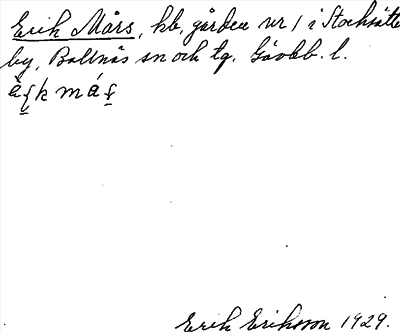 Erik Mårs, hb, gården nr 1 i Stocksätte
by, Bollnäs sn och tg. Gävleb. l.
Erik Eriksson 1929.